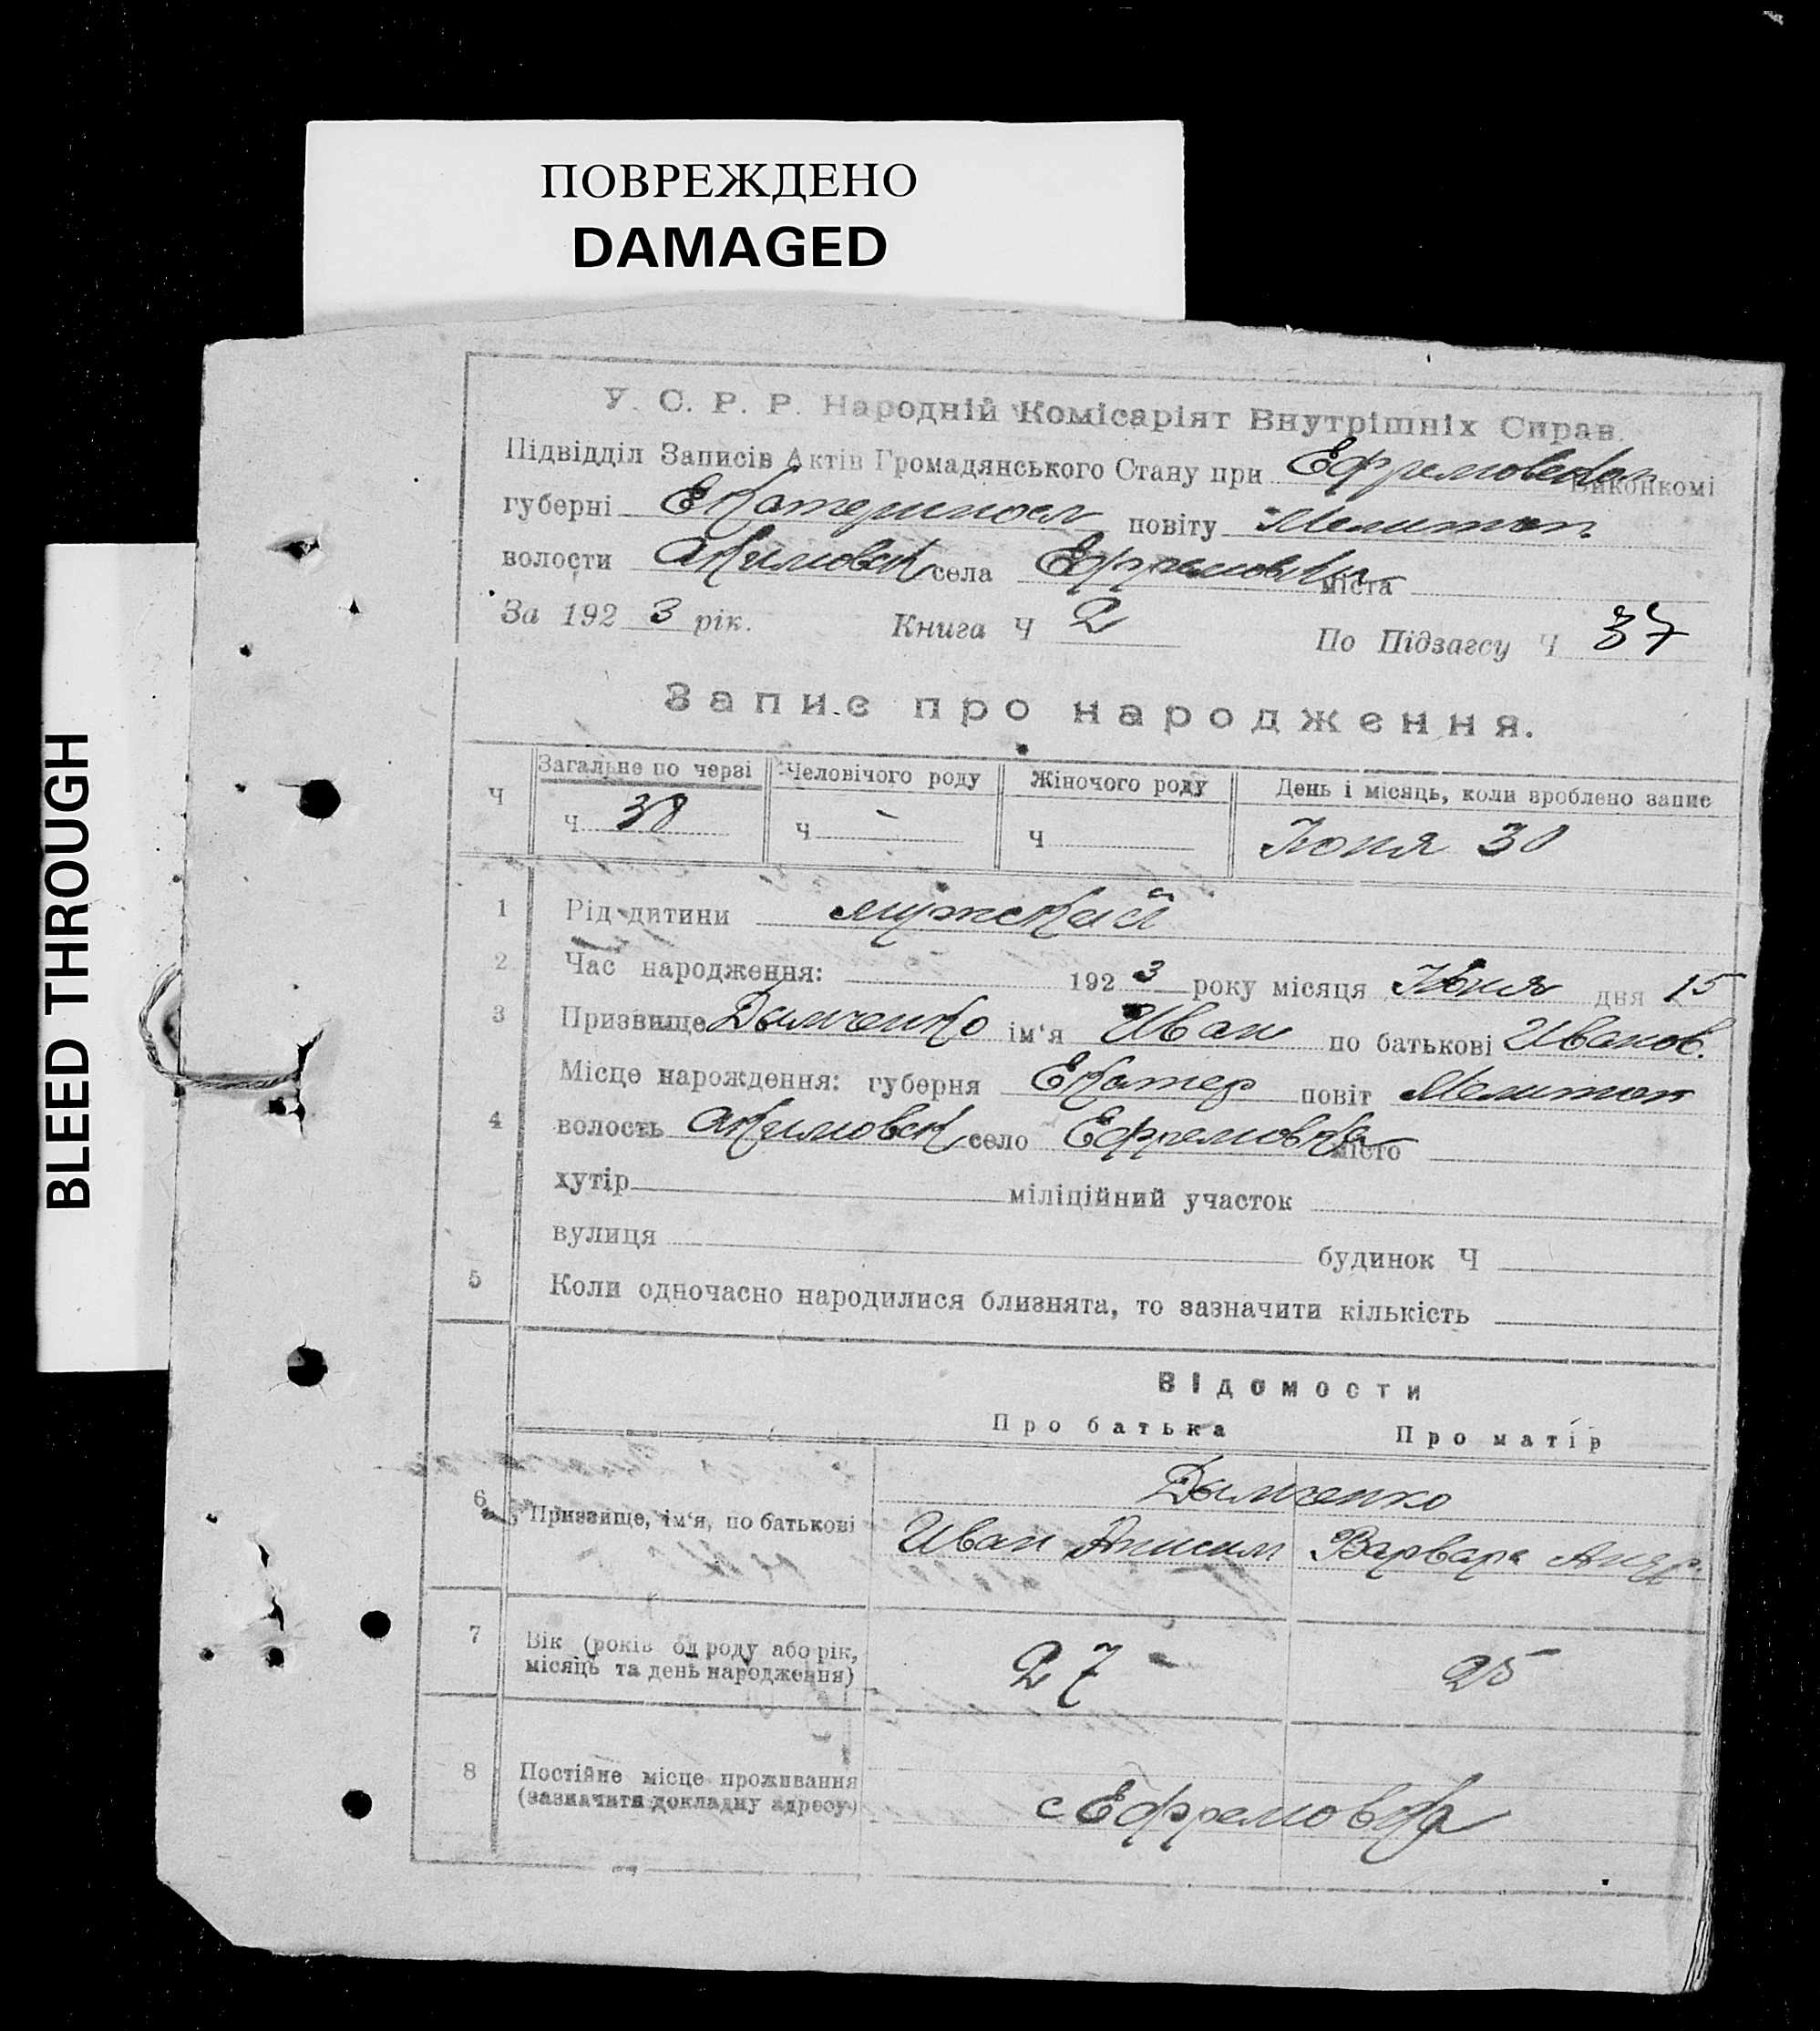 ПОВРЕЖДЕНО
DAMAGED
BLEED THROUGH
У. С. Р. Р. Народній Комісаріят Внутрішніх Справ.
Підвідділ Записів Актів Громадянського Стану при Ефремовском Виконкомі
губерні Екатериносл повіту Мелитоп.
волости Акимовск села Ефремовка міста
За 192 3 рік. Книга Ч 2 По Підзагсу Ч 37
Запис про народження.
Ч Загальне по черзі Человічого роду Жіночого роду День і місяць, коли зроблено запис
Ч 38 Ч - Ч Июня 30
1 Рід дитини мужской
2 Час народження: 192 3 року місяця Июня дня 15
3 Призвище Дымченко ім'я Иван по батькові Иванов.
Місце нарождення: губерня Екатер повіт Мелитоп
4 волость Акимовск село Ефремовка місто
хутір міліційний участок
вулиця будинок Ч
5 Коли одночасно народилися близнята, то зазначити кількість
Відомости
Про батька Про матір
Дымченко
6 Призвище, ім'я, по батькові Иван Анисим Варвара Андр.
7 Вік (років од роду або рік, 27 - 25
місяць та день народження)
8 Постійне місце проживання
(зазначити докладну адресу) с Ефремовка